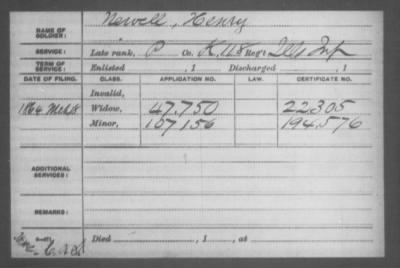 NAME OF SOLDIER: Newell, Henry
SERVICE: Late rank, P Co. K, 118 Reg't Ills Inf
TERM OF SERVICE: Enlisted , 1 Discharged , 1
DATE OF FILING. CLASS. APPLICATION NO. LAW. CERTIFICATE NO.
Invalid,
1864 Mch Widow, 47.750 22305
Minor, 157156 194.576
ADDITIONAL SERVICES:
REMARKS:
Died , 1 , at